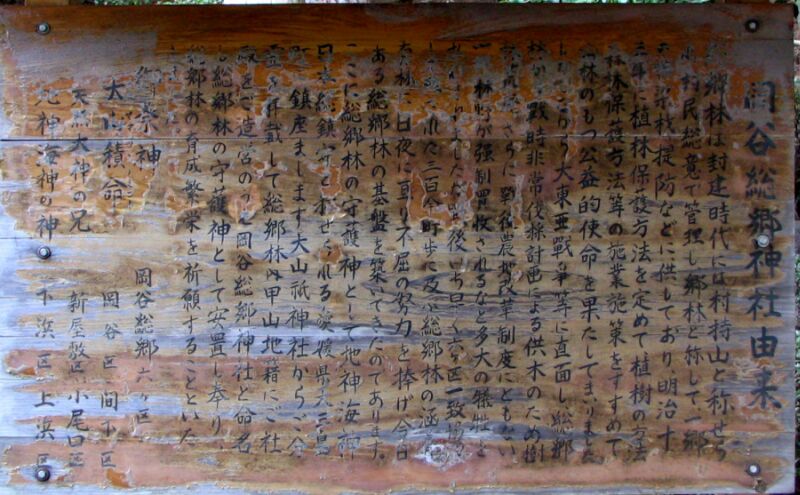 岡谷総郷神社由来
郷林は封建時代には村持山と称せら
村民総意で管理し郷林と称して一郷
架材提防などに供しており明治十
三年植林保護方法を定めて植樹の方法
林保護方法等の施業施策をすすめて
林のもつ公益的使命を果たしてまりました
大東亜戦争等に直面し総郷
戦時非常伐採計画による供木のため樹
さらに戦後農地改革制度にともない
林野が強制買收されるなど多大の犠牲を
後いち早く六ケ区一致協
れた三百余町歩に及ぶ総郷林の涵
日夜に亘り不屈の努力を捧げ今日
ある総郷林の基盤を築いてきたのであります。
ここに総郷林の守護神として地神海神
日本総鎮守と称せられる愛媛県大三島
町鎮座まします大山祇神社からご分
霊を拝戴して総郷林内甲山地籍にご社
殿をご造営のうえ岡谷総郷神社と命名
し総郷林の守護神として安置し奉り
総郷林の育成繁栄を祈願することといた
御祭神 岡谷総郷六ケ区
大山積命 岡谷区 間下区
天照大神の兄 新屋敷区 小尾口区
地神海神の神 下浜区 上浜区